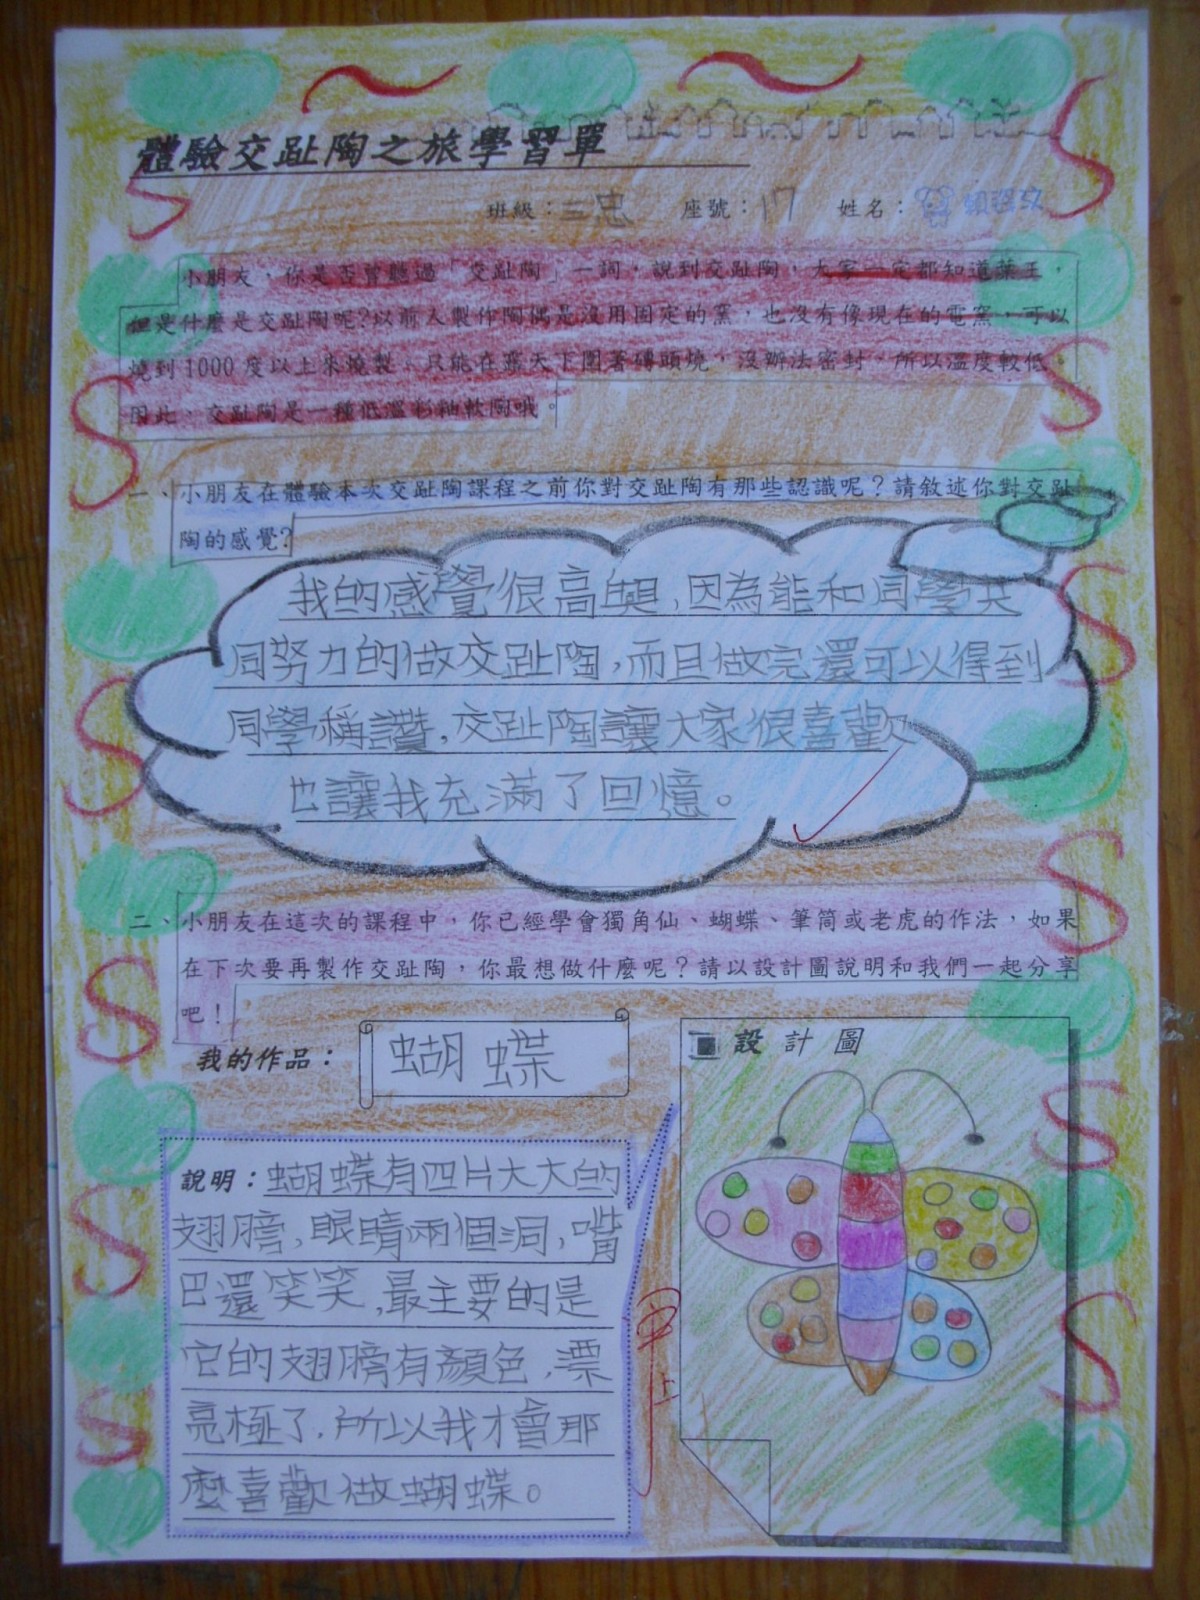 體驗交趾陶之旅學習單
班級：三忠 座號：17 姓名：
小朋友，你是否曾聽過「交趾陶」一詞，說到交趾陶，大家一定都知道葉王，
但是什麼是交趾陶呢?以前人製作陶偶是沒用固定的窯，也沒有像現在的電窯，可以
燒到1000度以上來燒製，只能在露天下圍著磚頭燒，沒辦法密封，所以溫度較低。
因此，交趾陶是一種低溫彩釉軟陶哦。
一、小朋友在體驗本次交趾陶課程之前你對交趾陶有那些認識呢？請敘述你對交趾
陶的感覺?
我的感覺很高興,因為能和同學共
同努力的做交趾陶,而且做完還可以得到
同學稱讚,交趾陶讓大家很喜歡
也讓我充滿了回憶。
二、小朋友在這次的課程中，你已經學會獨角仙、蝴蝶、筆筒或老虎的作法，如果
在下次要再製作交趾陶，你最想做什麼呢？請以設計圖說明和我們一起分享
吧！
我的作品：蝴蝶
說明：蝴蝶有四片大大的
翅膀,眼睛兩個洞,嘴
巴還笑笑,最主要的是
它的翅膀有顏色,漂
亮極了,所以我才會那
麼喜歡做蝴蝶。
設計圖